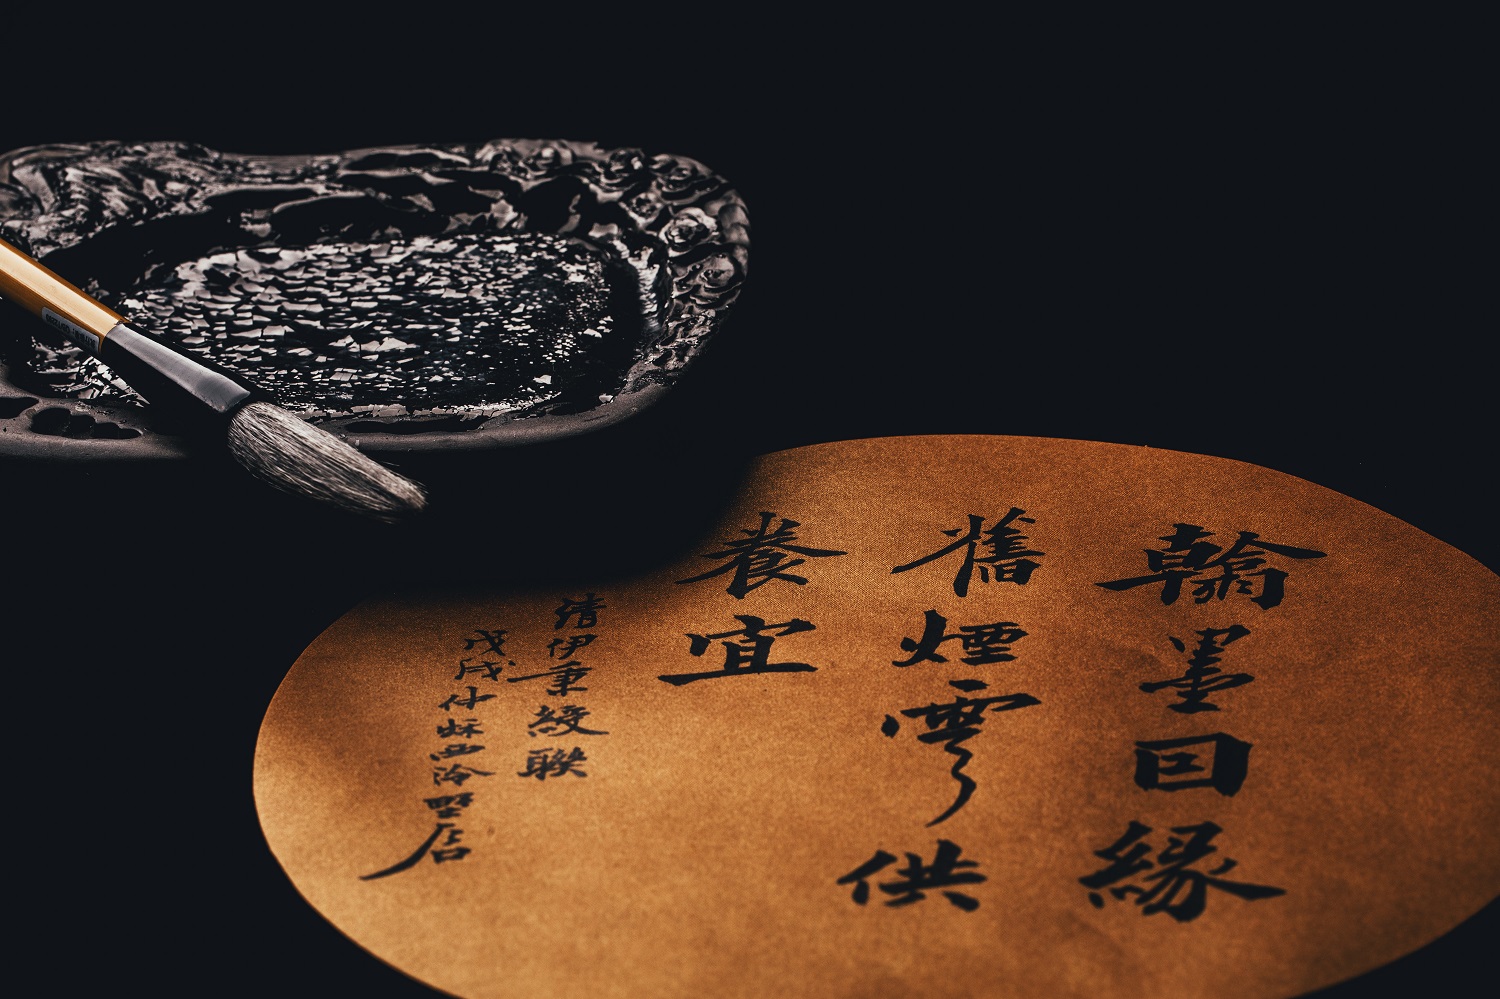 翰墨因緣
舊煙雲供
養宜
清伊秉綬聯
戊戌仲秋西泠墅居